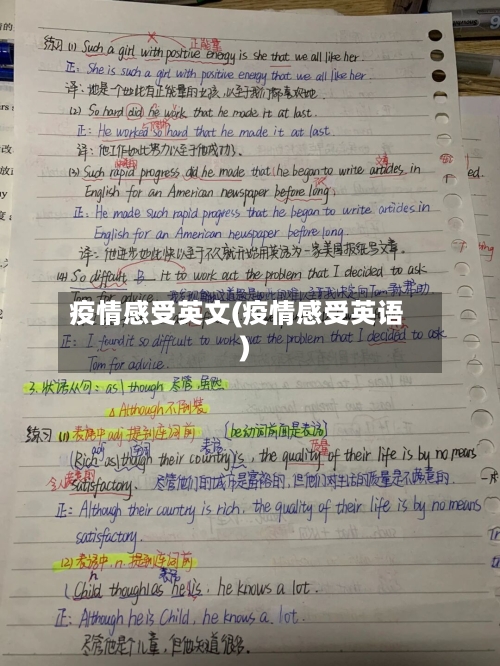 练习 (1) Such a girl with positive energy is she that we all like her.
正能量
正: She is such a girl with positive energy that we all like her.
译: 她是个如此有正能量的女孩,以至于我们都喜欢她.
(2) So hard did he work that he made it at last.
正: He worked so hard that he made it at last.
译: 他工作如此努力以至于他成功了.
(3) Such rapid progress did he made that he began to write articles in
English for an American newspaper before long.
正: He made such rapid progress that he began to write articles in
English for an American newspaper before long.
译: 他进步如此快以至于不久就开始用英语为一家美国报纸写文章.
(4) So difficult it to work out the problem that I decided to ask
Tom for advice.
疫情感受英文(疫情感受英语
)
正: I found it so difficult to work out the problem that I decided to ask
Tom for advice.
3. 状语从句: as | though 尽管,虽然
△ Although 不倒装
练习 (1) 表语中 adj 提到连词前 [be动词前面是表语]
adj 表语 质量
(Rich as|though their country is, the quality of their life is by no means
令人满意的
satisfactory. 尽管他们的城市是富裕的,但他们对生活的质量是不满意的.
正: Although their country is rich, the quality of their life is by no means
satisfactory.
(2) 表语中 n. 提到连词前
n 表语
(Child though|as he is, he knows a lot.
正: Although he is Child, he knows a lot.
尽管他是个儿童,但他知道很多.